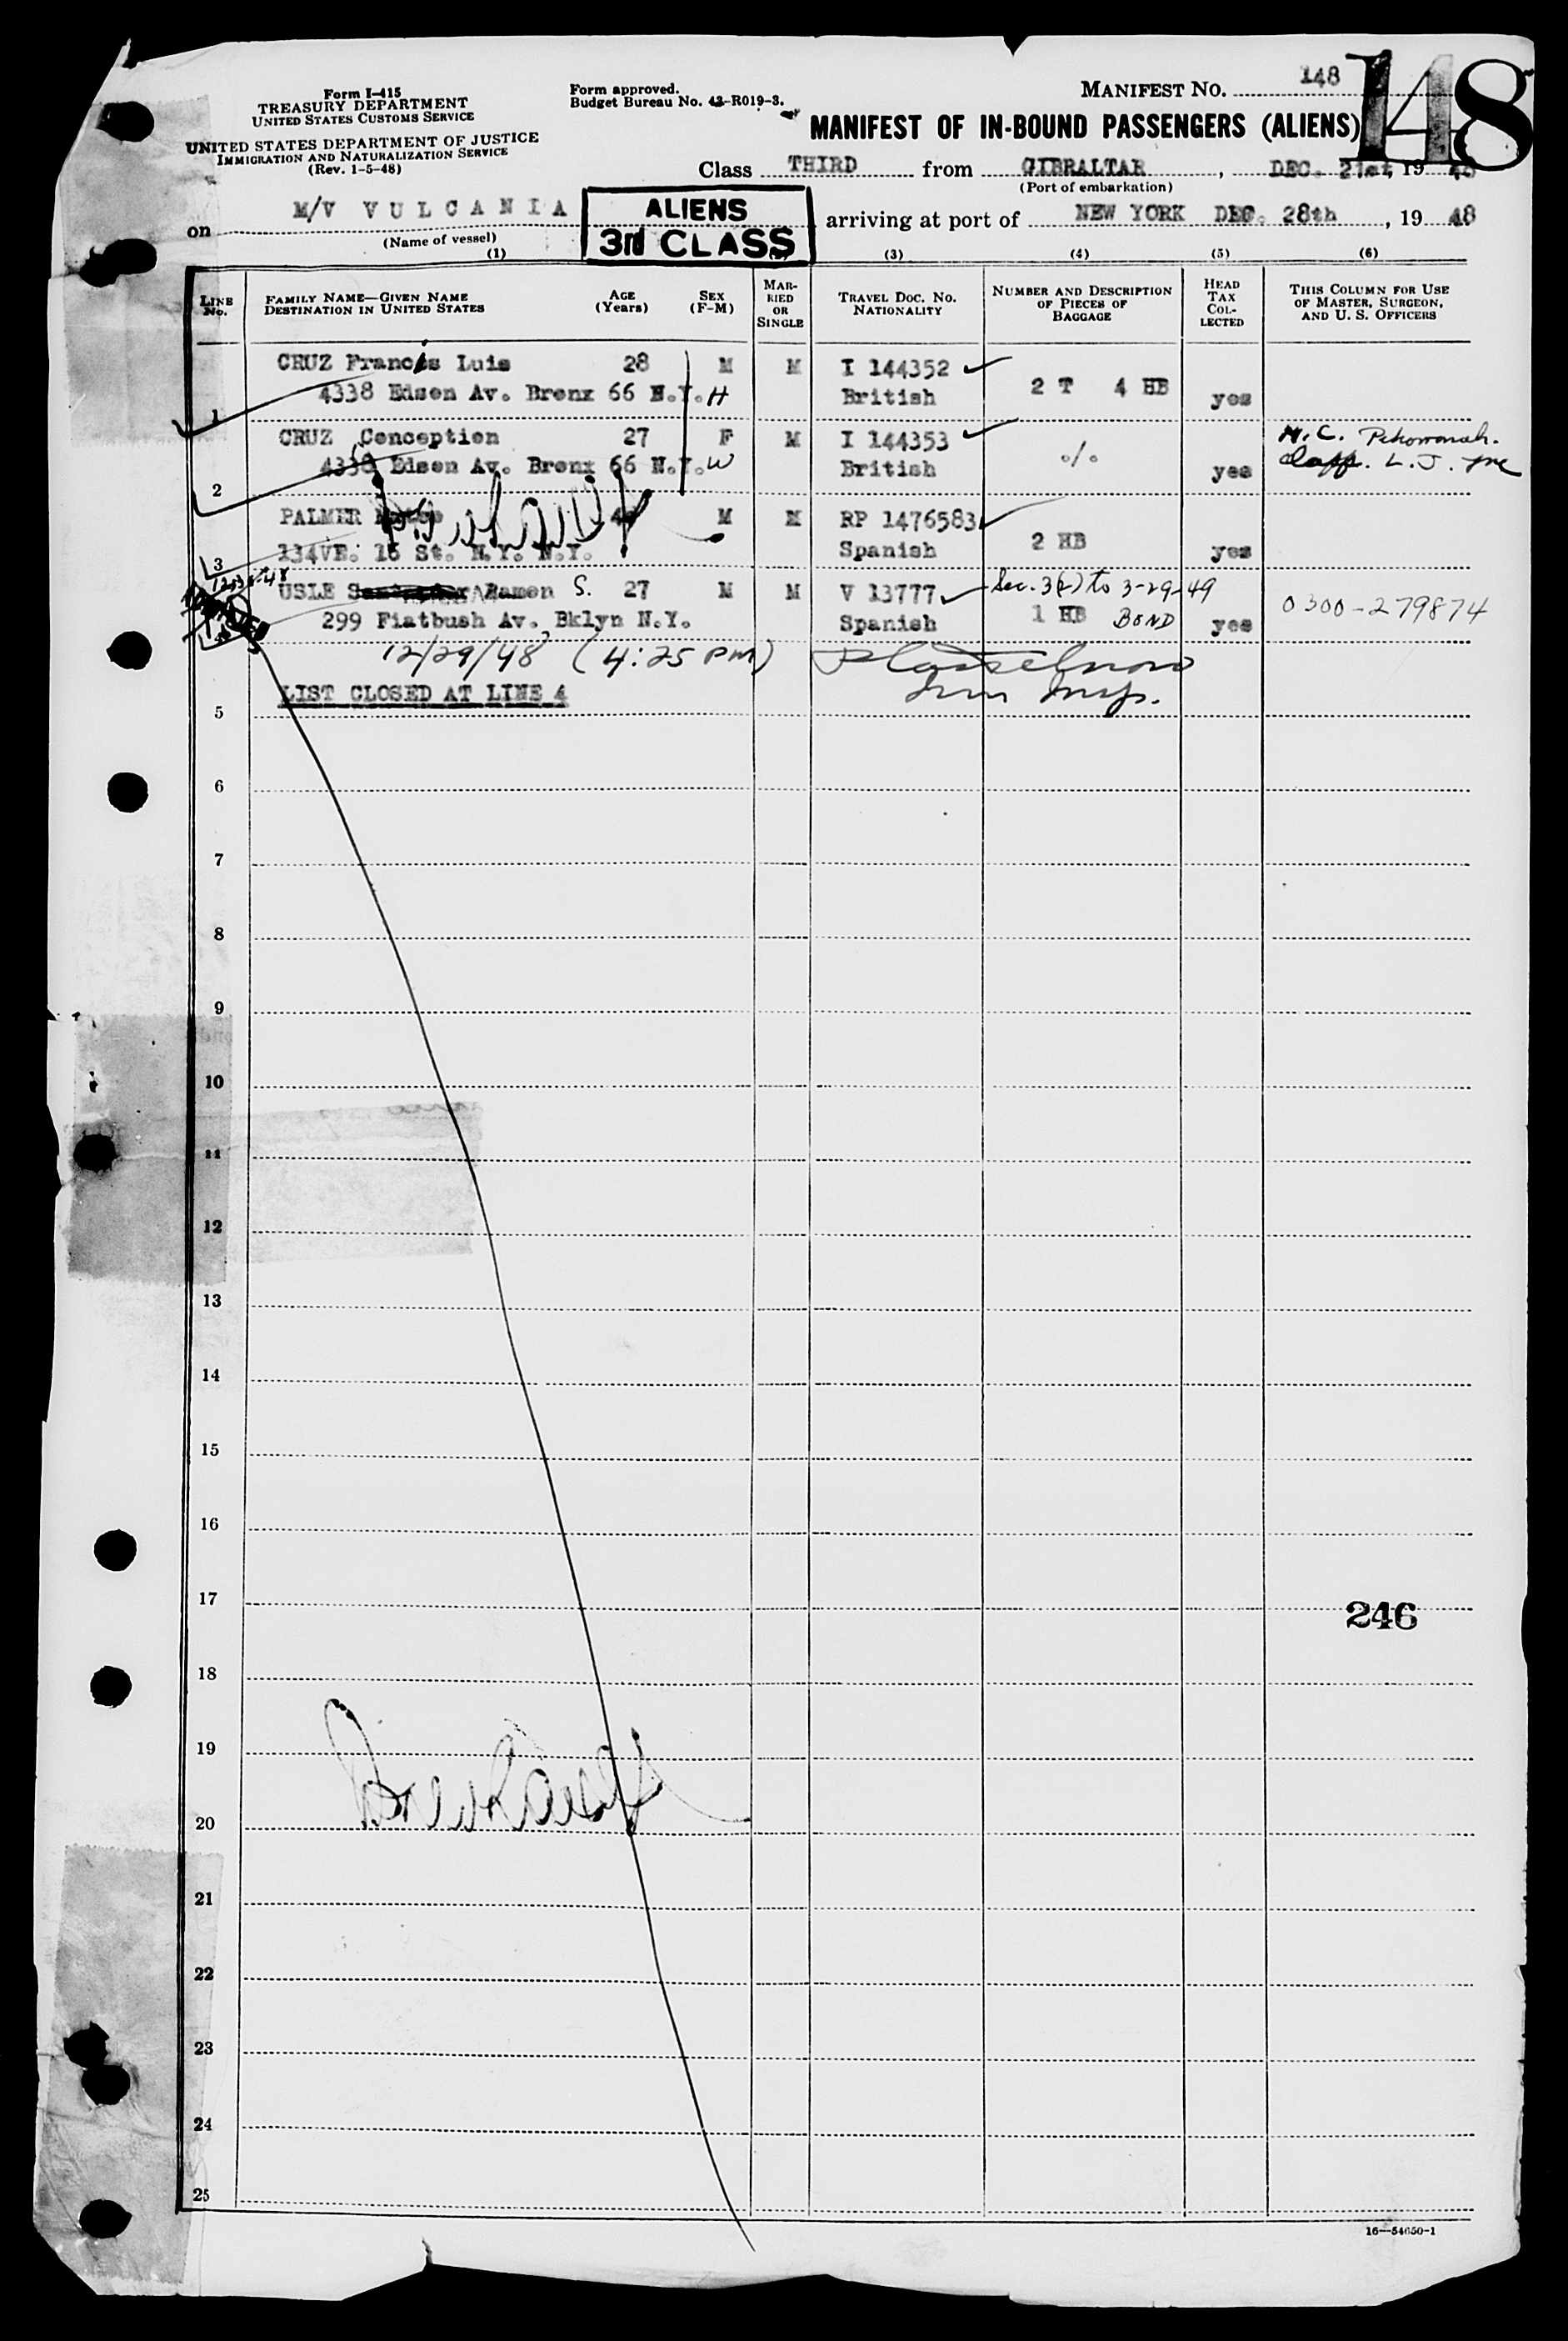 Form I-415
TREASURY DEPARTMENT
UNITED STATES CUSTOMS SERVICE
UNITED STATES DEPARTMENT OF JUSTICE
IMMIGRATION AND NATURALIZATION SERVICE
(Rev. 1-5-48)
Form approved.
Budget Bureau No. 43-R019-3.
MANIFEST NO. 148
148
MANIFEST OF IN-BOUND PASSENGERS (ALIENS)
Class THIRD from GIBRALTAR, DEC. 21st, 1948
(Port of embarkation)
on M/V VULCANIA
(Name of vessel)
ALIENS
3rd CLASS
arriving at port of NEW YORK DEC. 28th, 1948
(1) (3) (4) (5) (6)
LINE No. FAMILY NAME—GIVEN NAME DESTINATION IN UNITED STATES AGE (Years) SEX (F-M) MARRIED OR SINGLE TRAVEL DOC. No. NATIONALITY NUMBER AND DESCRIPTION OF PIECES OF BAGGAGE HEAD TAX COLLECTED THIS COLUMN FOR USE OF MASTER, SURGEON, AND U. S. OFFICERS
CRUZ Francis Luis 28 M M I 144352
1 4338 Edsen Av. Bronx 66 N.Y. H British 2 T 4 HB yes
CRUZ Conception 27 F M I 144353 H.C.
2 4338 Edsen Av. Bronx 66 N.Y. W British o/o yes L. J.
PALMER M M RP 1476583
3 134VE. 16 St. N.Y. N.Y. Spanish 2 HB yes
12-31-48
USLE Ramon S. 27 M M V 13777 Sec. 3(2) to 3-29-49
4 299 Flatbush Av. Bklyn N.Y. Spanish 1 HB BOND yes 0300-279874
12/29/48 (4:25 PM)
LIST CLOSED AT LINE 4
5
6
7
8
9
10
11
12
13
14
15
16
17
246
18
19
20
21
22
23
24
25
16—54650-1